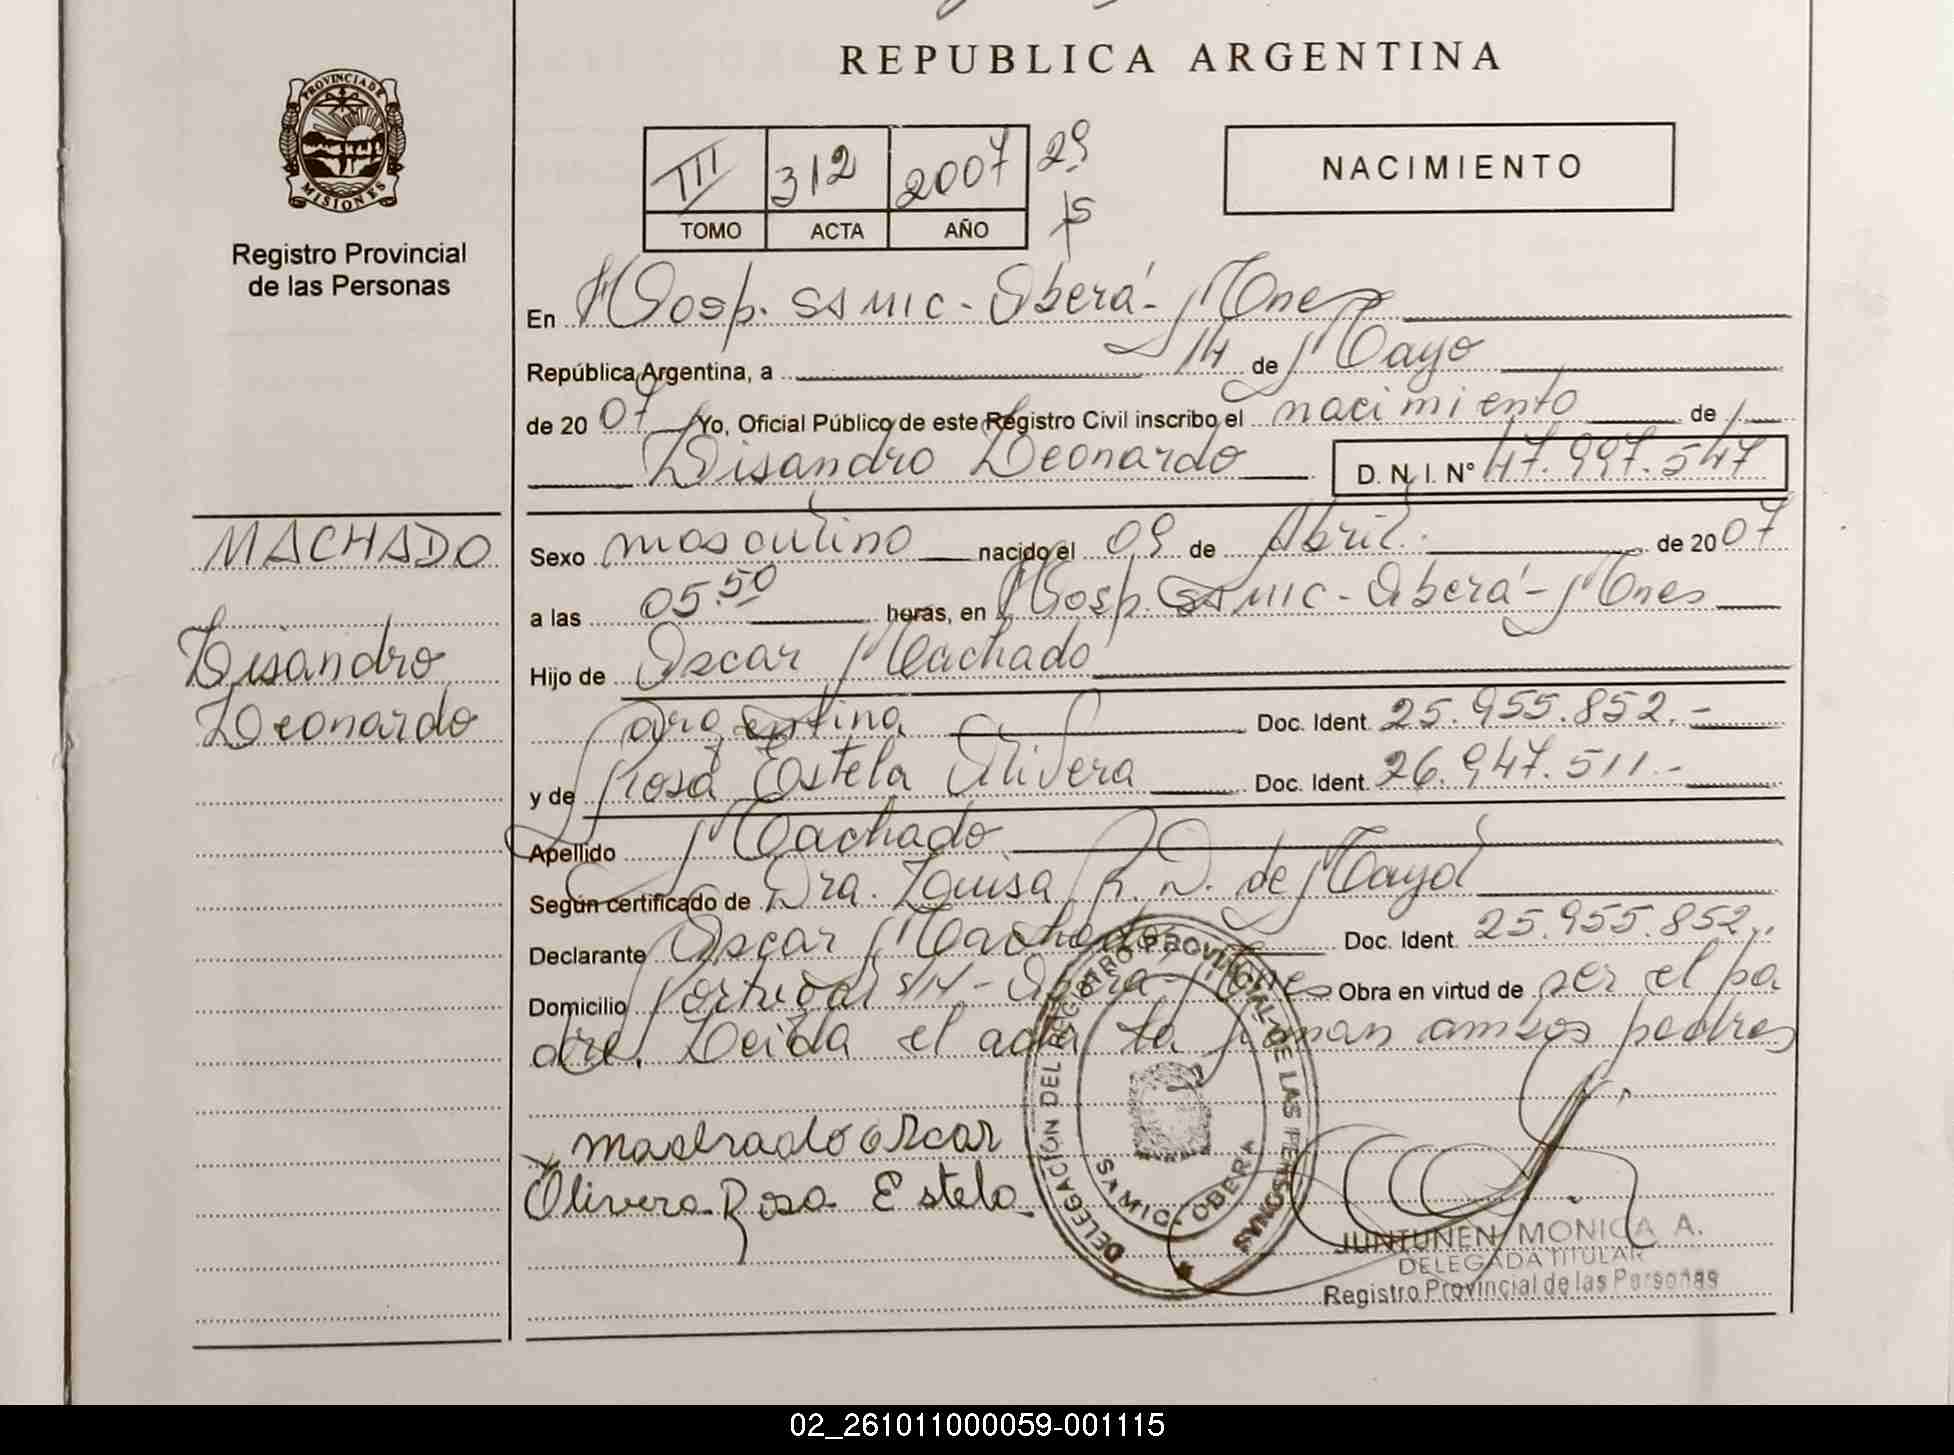 REPUBLICA ARGENTINA
PROVINCIA DE MISIONES
Registro Provincial
de las Personas
III 312 2007 29
TOMO ACTA AÑO 15
NACIMIENTO
En Hosp. SAMIC - Oberá - Mnes
República Argentina, a 14 de Mayo
de 2007 Yo, Oficial Público de este Registro Civil inscribo el nacimiento de
Lisandro Leonardo D. N. I. N° 47.997.547
MACHADO
Lisandro
Leonardo
Sexo masculino nacido el 09 de Abril de 2007
a las 05.50 horas, en Hosp. SAMIC - Oberá - Mnes
Hijo de Oscar Machado
argentina Doc. Ident. 25.955.852.-
y de Rosa Estela Olivera Doc. Ident. 26.947.511.-
Apellido Machado
Según certificado de Dra. Luisa R. D. de Mayol
Declarante Oscar Machado Doc. Ident. 25.955.852.
Domicilio Portugal S/N - Oberá - Mnes Obra en virtud de ser el pa
dre. Leída el acta la firman ambos padres
machado oscar
Olivera Rosa Estela
DELEGACIÓN DEL REGISTRO PROVINCIAL DE LAS PERSONAS
SAMIC - OBERA
JUNTUNEN MONICA A.
DELEGADA TITULAR
Registro Provincial de las Personas
02_261011000059-001115